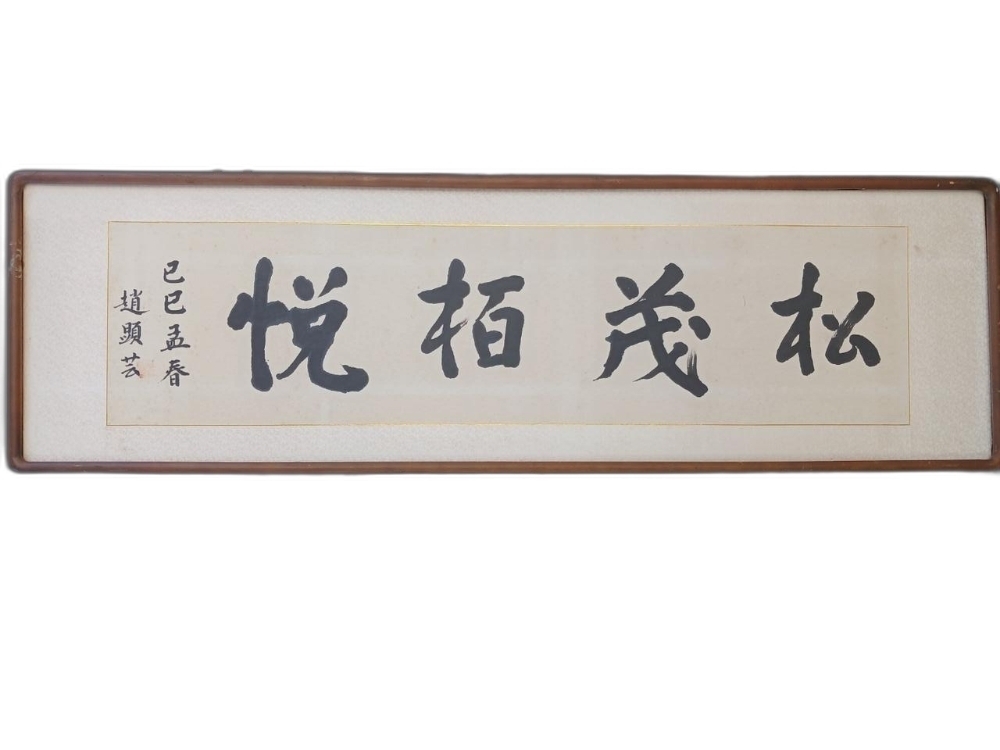 松茂栢悅
己巳孟春
趙顯芸